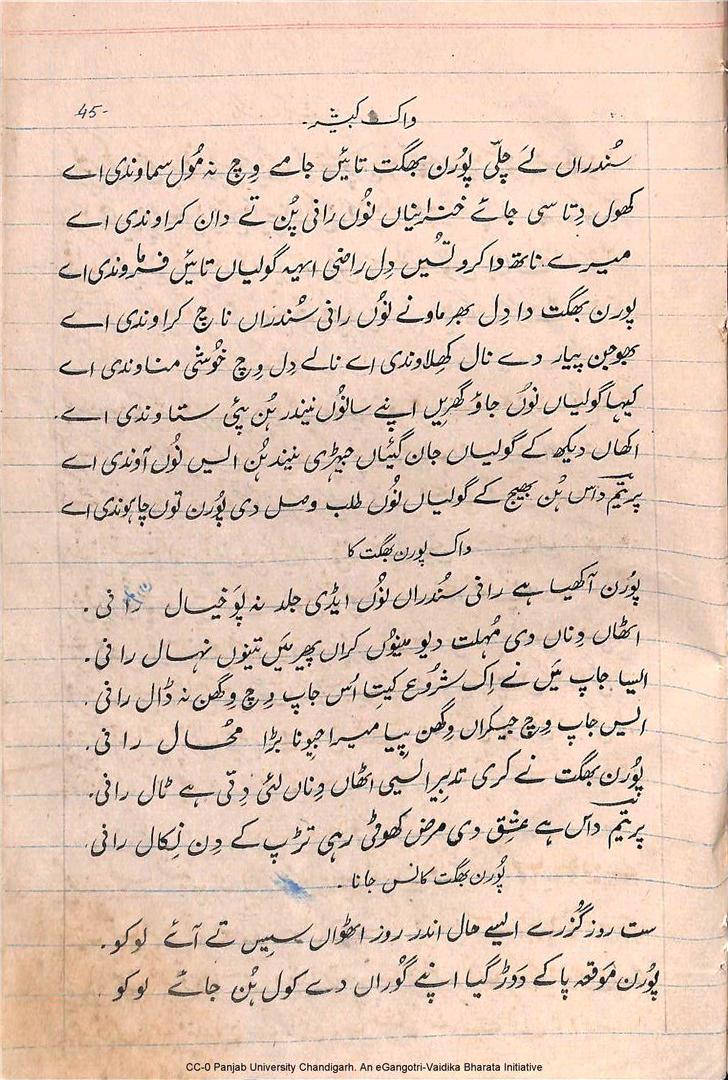 45-
واک کبیشر۔
سُندراں لَے چلّی پُورن بھگت تائیں جامے وِچ نہ مُول سماوندی اے
کھول دِتا سی جائے خزانیاں نُوں رانی پُن تے دان کراوندی اے
میرے ناتھ دا کرو تسُیں دِل راضی ایہہ گولیاں تائیں فرماوندی اے
پورن بھگت دا دِل بھرماونے نُوں رانی سُندراں ناچ کراوندی اے
بھوجن پیار دے نال کھِلاوندی اے نالے دِل وِچ خُوشی مناوندی اے
کیہا گولیاں نُوں جاؤ گھریں اپنے سانُوں نیندر ہُن پئی ستاوندی اے۔
اکھاں دیکھ کے گولیاں جان گئیاں جیہڑی نیند ہُن ایس نُوں آوندی اے
پریتم داس ہُن بھیج کے گولیاں نُوں طلب وصل دی پُورن توں چاہوندی اے
واک پورن بھگت کا
پُورن آکھیا ہے رانی سُندراں نُوں ایڈی جلد نہ پَو خیال رانی۔
اٹھاں دِناں دی مُہلت دیو مینُوں کراں پھیر مَیں تینوں نہال رانی۔
ایسا جاپ مَیں نے اِک شرُوع کیتا اُس جاپ وِچ وِگھن نہ ڈال رانی۔
ایس جاپ وِچ جیکراں وِگھن پیا میرا جیونا بڑا محُال رانی۔
پُورن بھگت نے کری تدبیر ایسی اٹھاں دِناں لئی دِتی ہے ٹال رانی۔
پریتم داس ہے عشِق دی مرض کھوٹی رہی تڑپ کے دِن نِکال رانی
پُورن بھگت کا نس جانا۔
ست روز گُزرے ایسے حال اندر روز اٹھواں سِیس تے آئے لوکو۔
پُورن مَوقعہ پا کے دَوڑ گیا اپنے گوُراں دے کول ہُن جائے لوکو
CC-0 Panjab University Chandigarh. An eGangotri-Vaidika Bharata Initiative